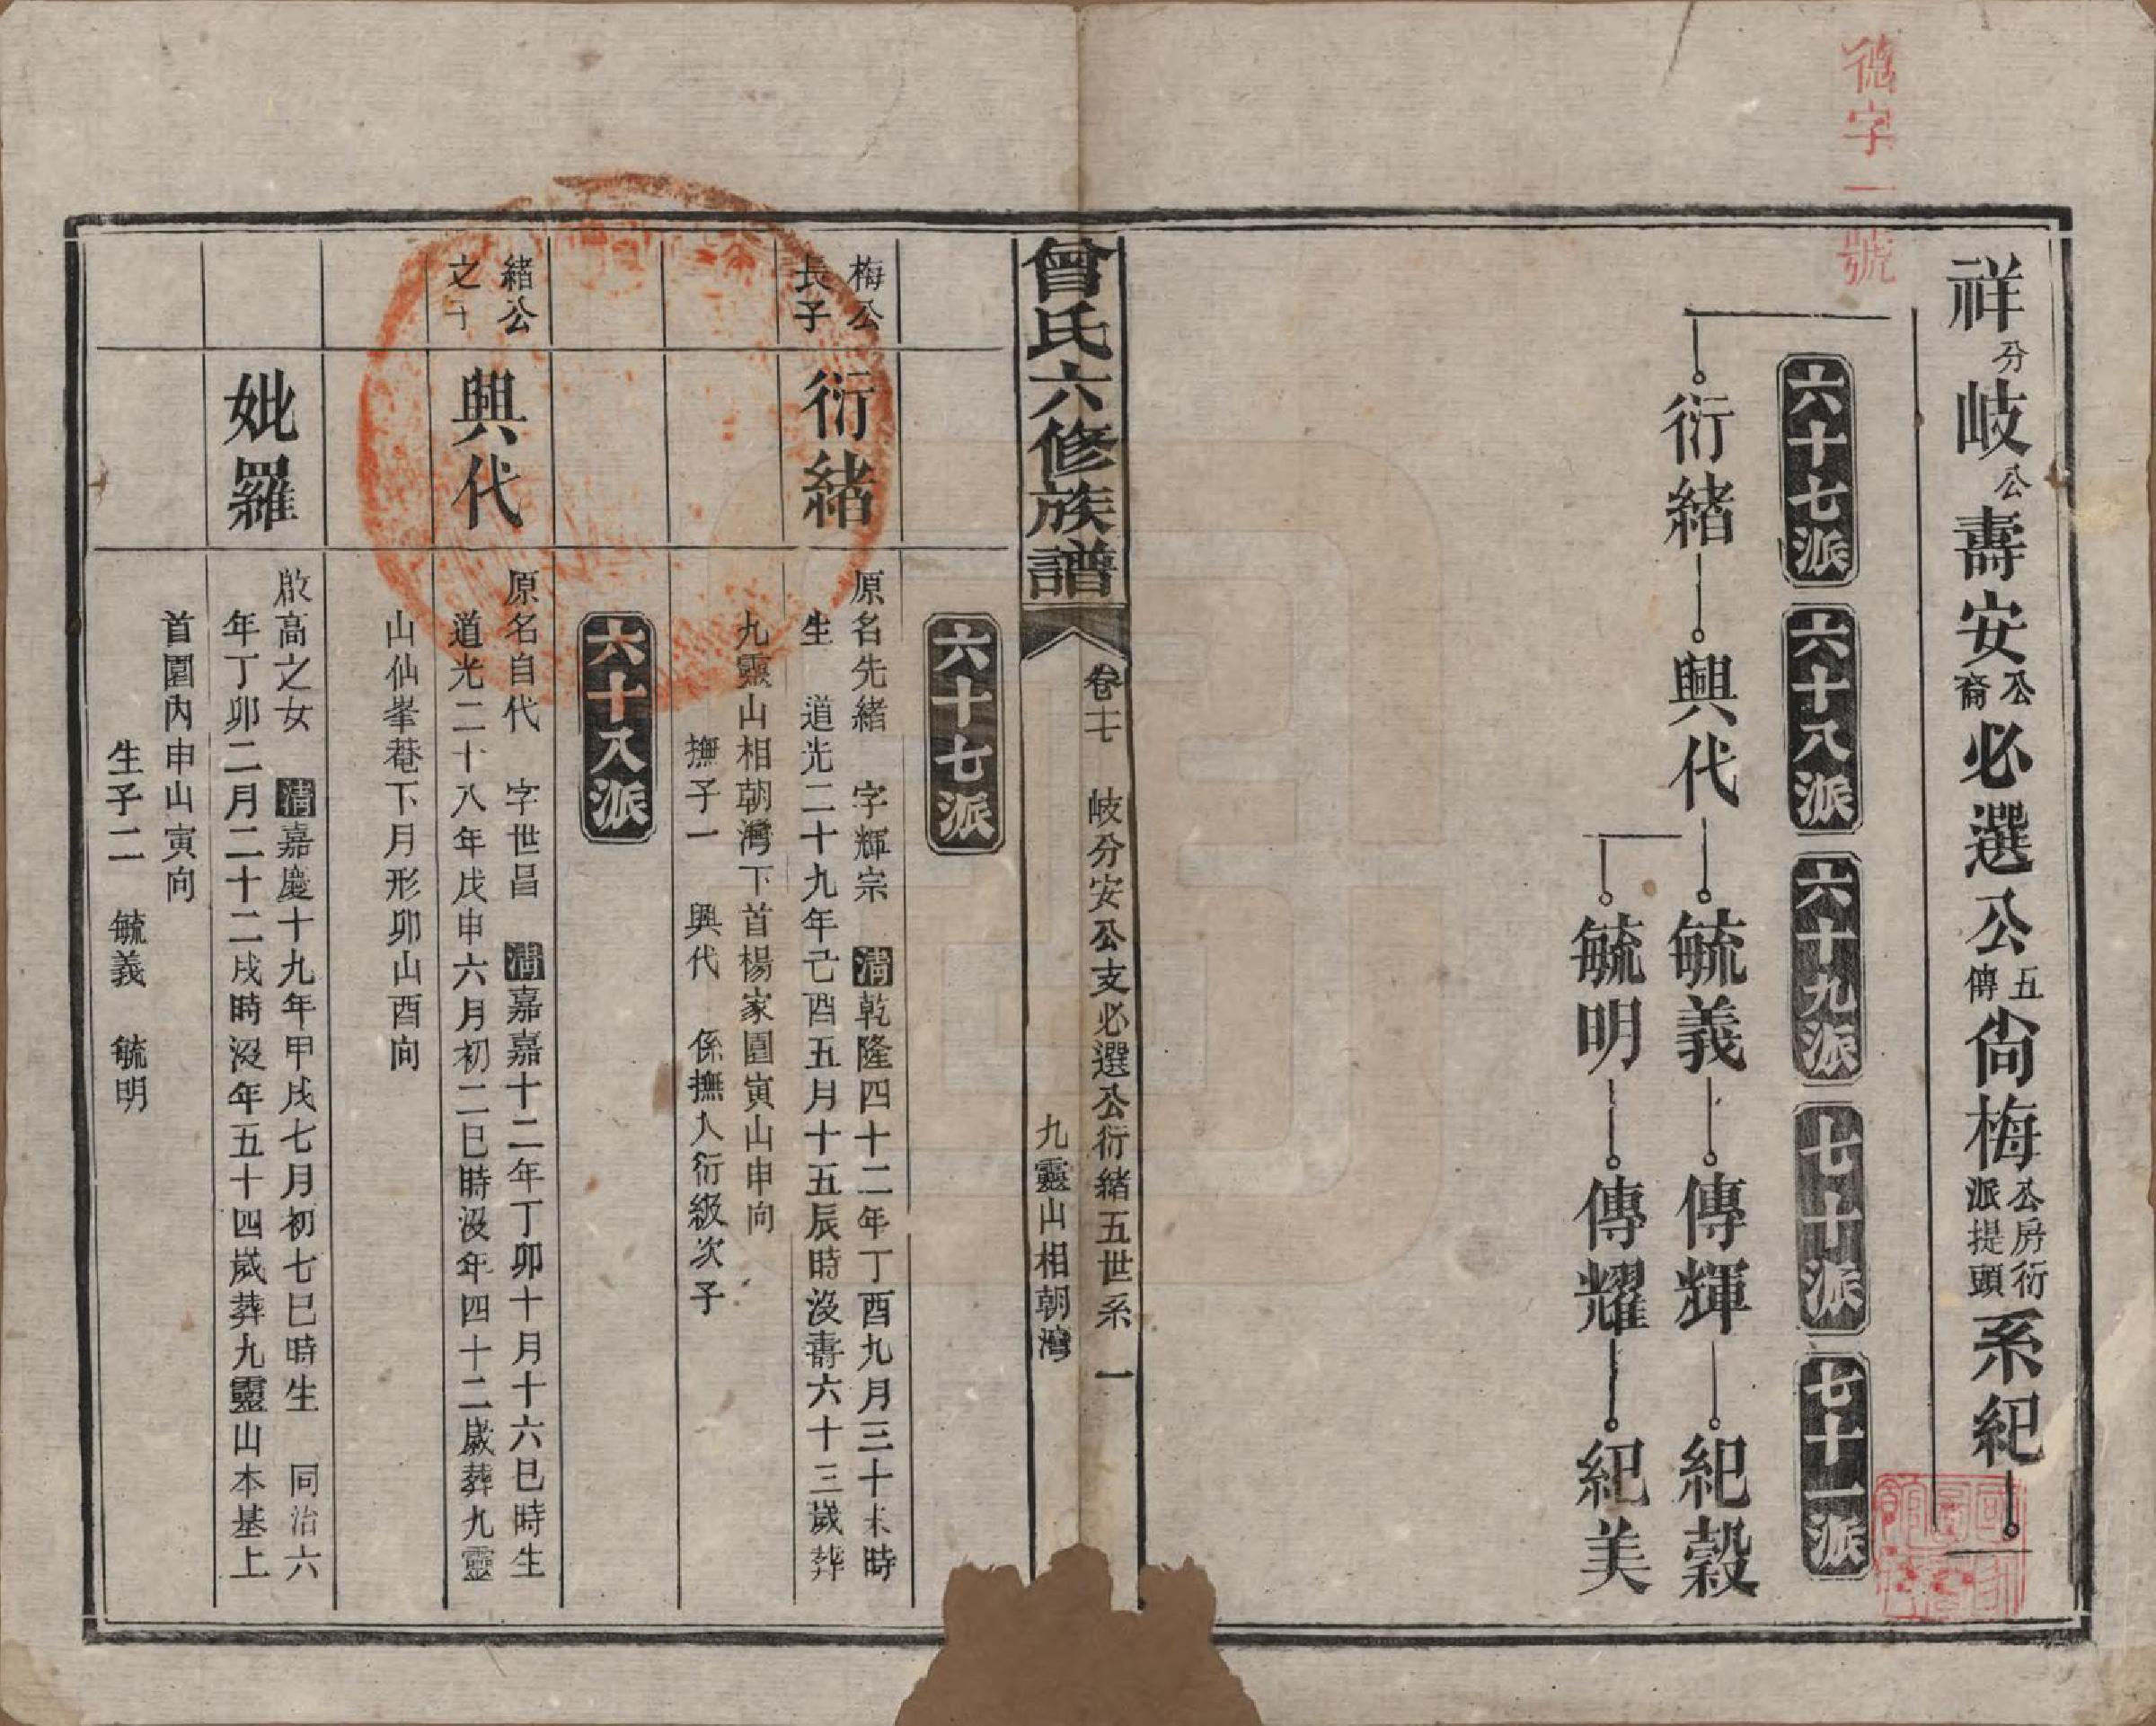 德字一號
祥分岐公壽安公裔必選公五傳尙梅公房衍派提頭系紀
六十七派
六十八派
六十九派
七十派
七十一派
衍緒
興代
毓義
傳輝
紀穀
毓明
傳耀
紀美
曾氏六修族譜
卷十七 岐分安公支必選公衍緒五世系 一
九靈山相朝灣
六十七派
梅公
長子
衍緒
原名先緒 字輝宗 清乾隆四十二年丁酉九月三十未時
生 道光二十九年己酉五月十五辰時沒壽六十三歲葬
九靈山相朝灣下首楊家園寅山申向
撫子一 興代 係撫人衍級次子
六十八派
緒公
之子
興代
原名自代 字世昌 清嘉嘉十二年丁卯十月十六巳時生
道光二十八年戊申六月初二巳時沒年四十二歲葬九靈
山仙峯菴下月形卯山酉向
妣羅
啟高之女 清嘉慶十九年甲戌七月初七巳時生 同治六
年丁卯二月二十二戌時沒年五十四歲葬九靈山本基上
首園內申山寅向
生子二 毓義 毓明